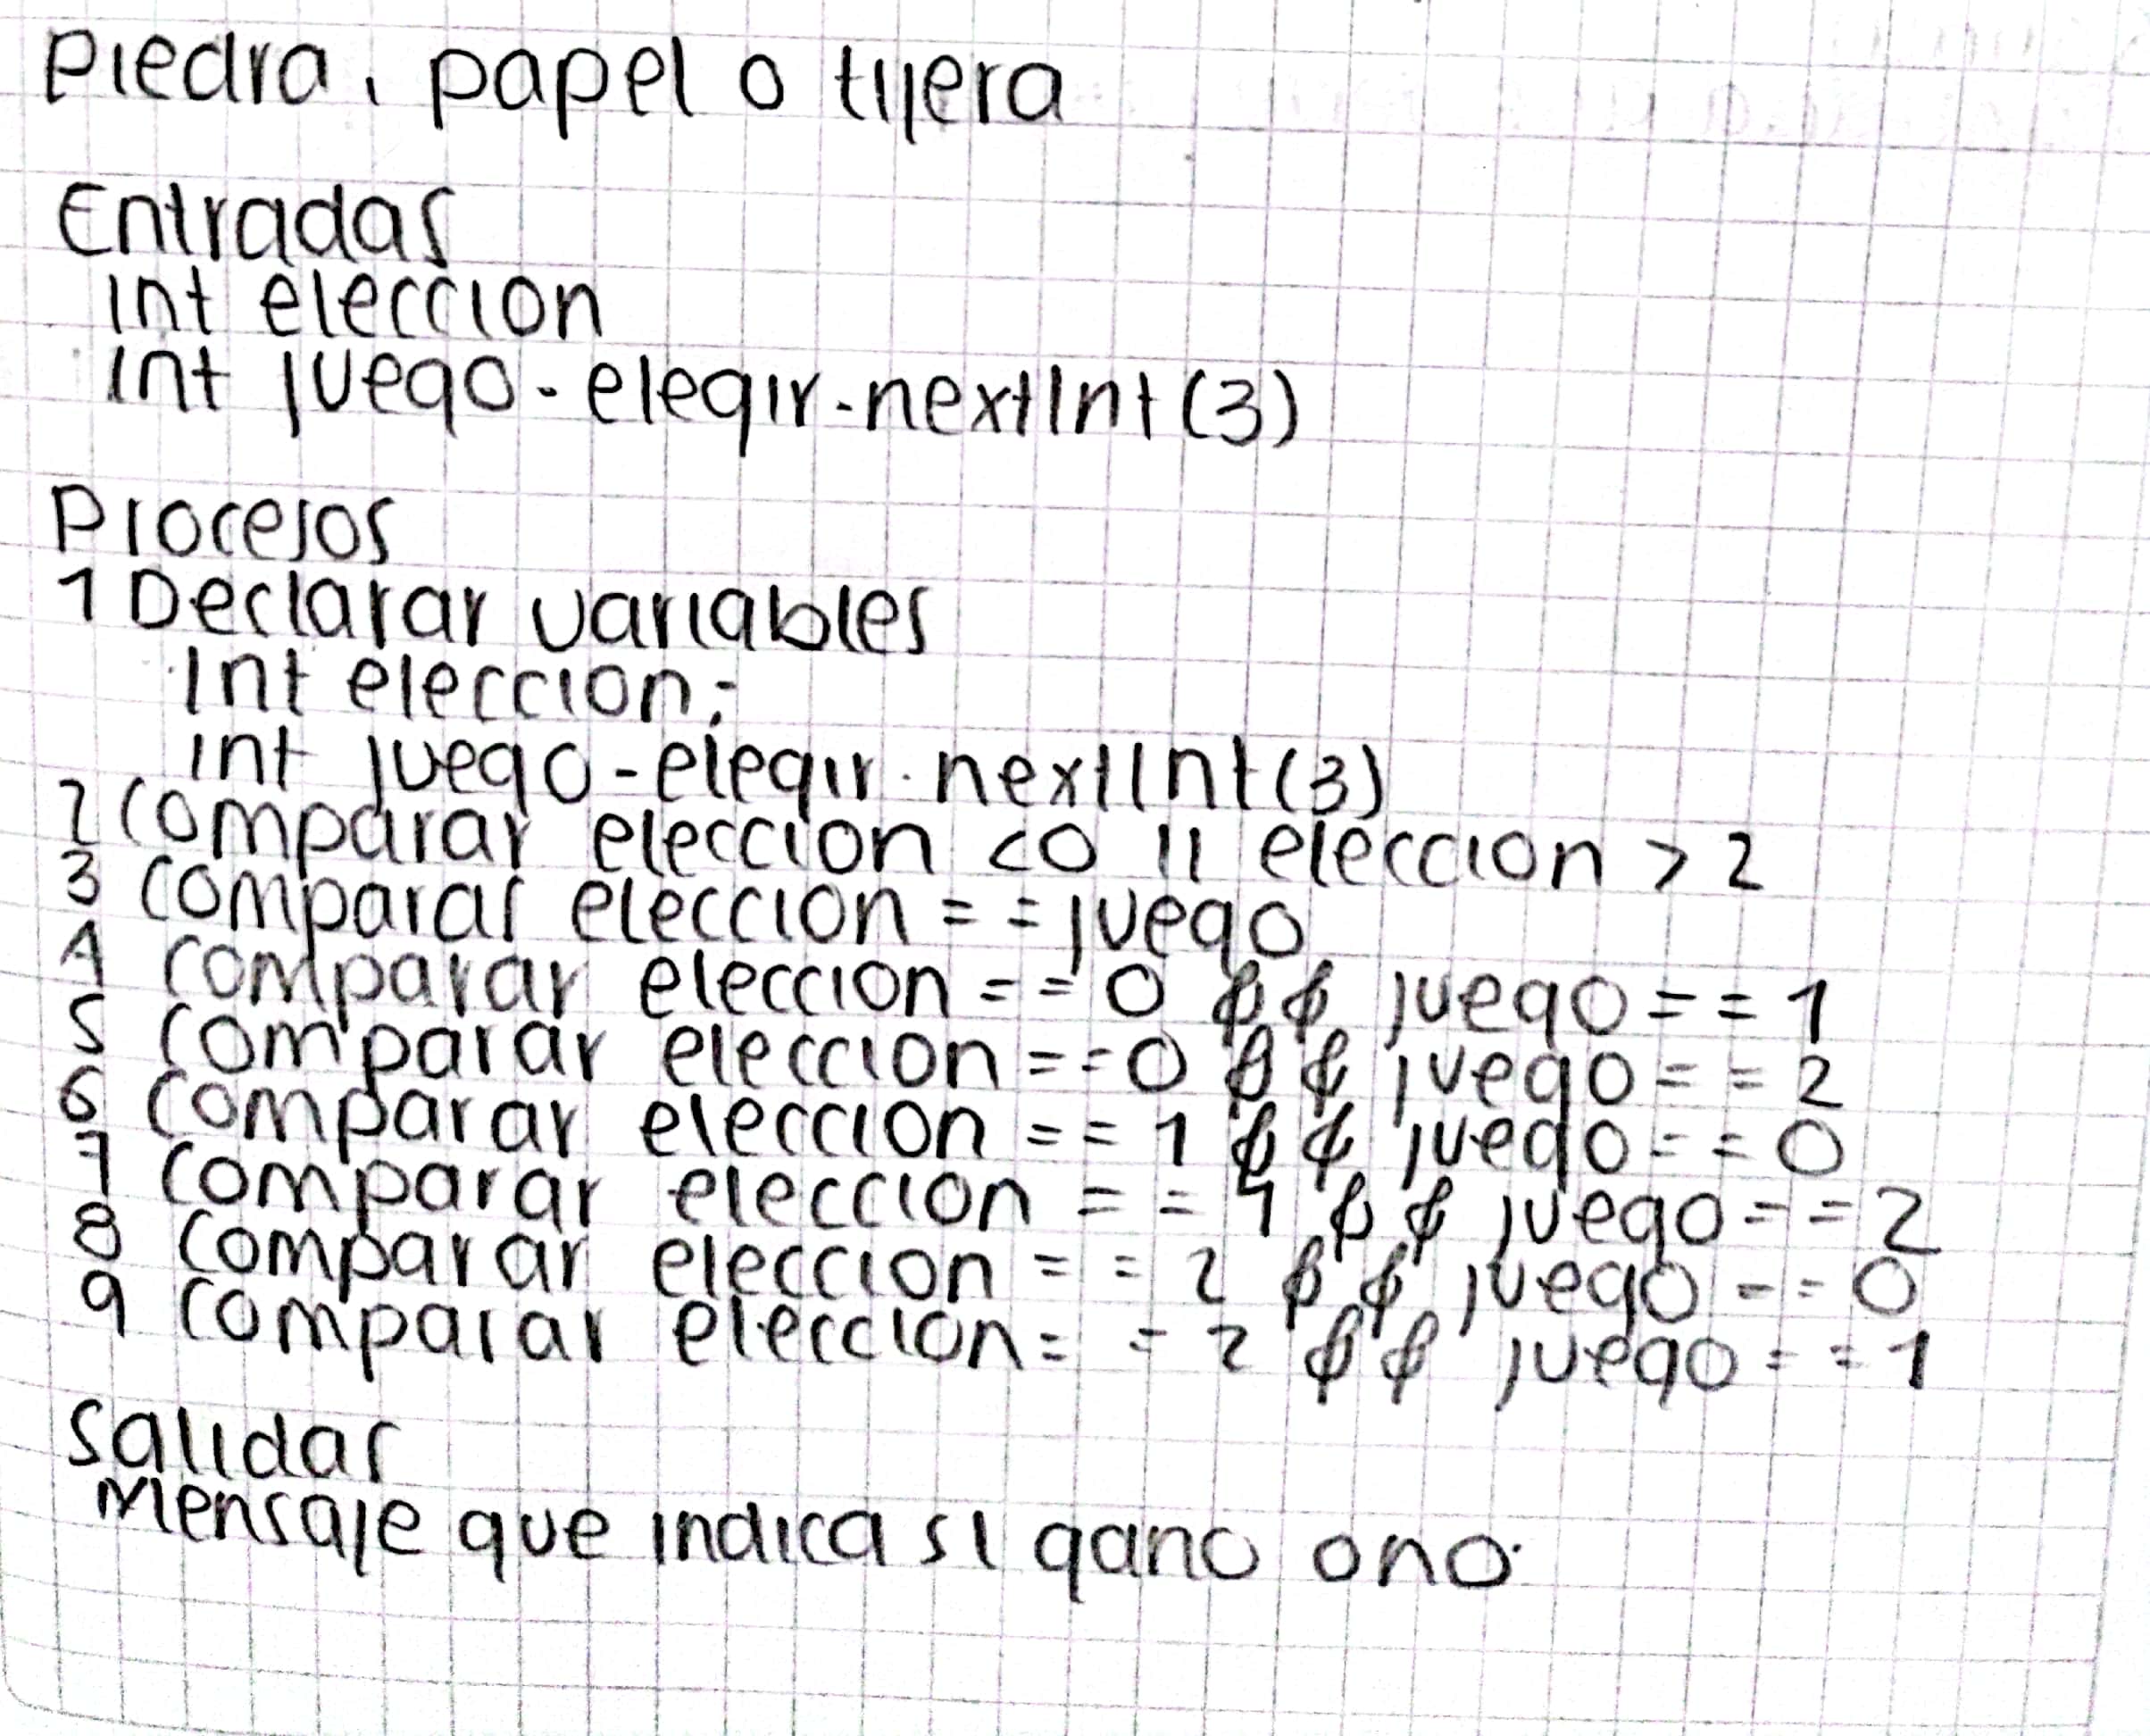 Piedra, papel o tijera
Entradas
int eleccion
int juego-elegir.nextInt(3)
Procesos
1 Declarar variables
int eleccion;
int juego-elegir.nextInt(3)
2 comparar eleccion <0 || eleccion > 2
3 comparar eleccion == juego
4 comparar eleccion == 0 && juego == 1
5 comparar eleccion == 0 && juego == 2
6 comparar eleccion == 1 && juego == 0
7 comparar eleccion == 1 && juego == 2
8 comparar eleccion == 2 && juego == 0
9 comparar eleccion == 2 && juego == 1
Salidas
Mensaje que indica si gano o no.